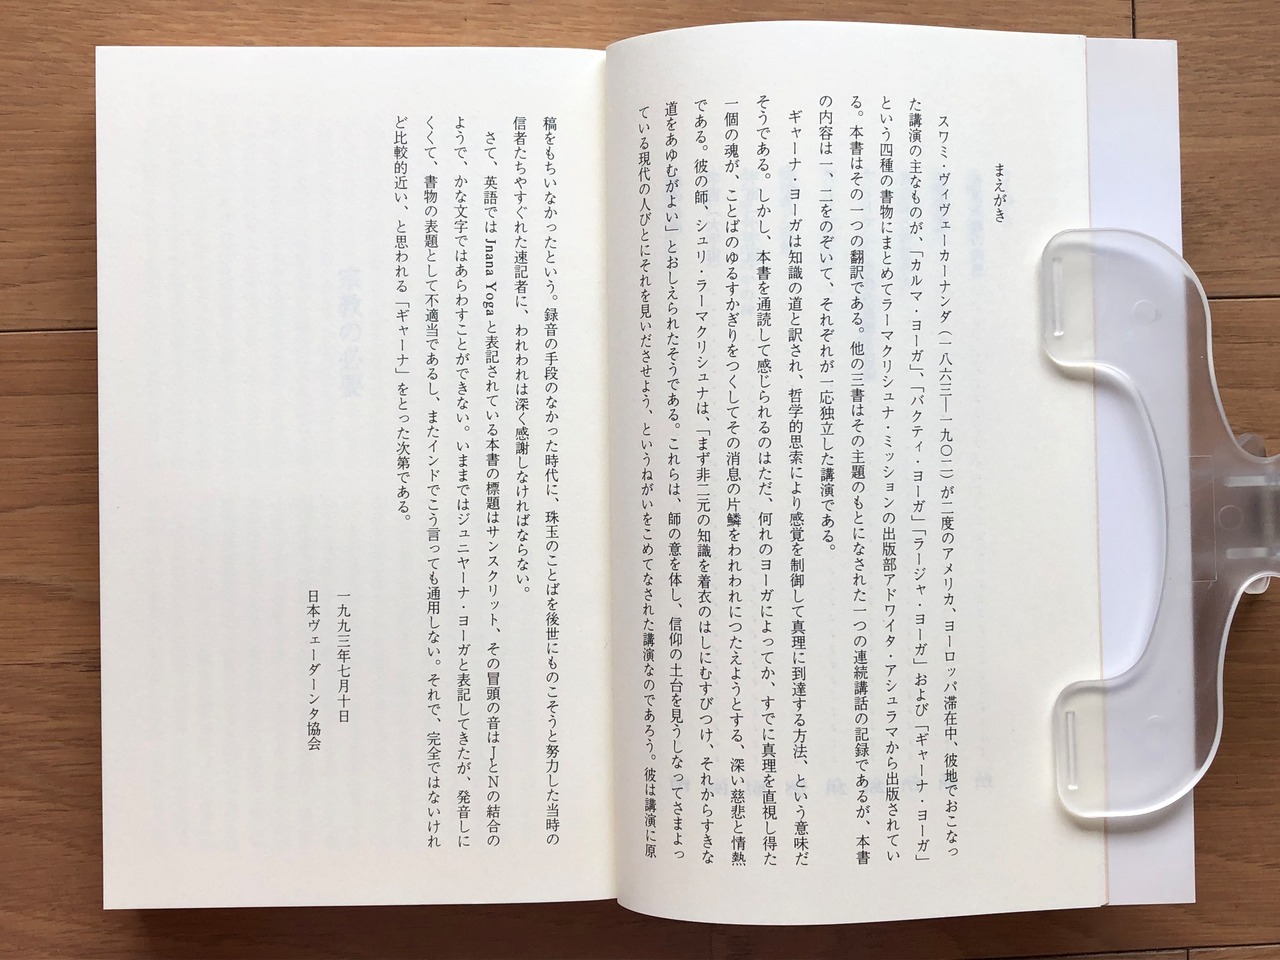 まえがき
スワミ・ヴィヴェーカーナンダ(一八六三―一九〇二)が二度のアメリカ、ヨーロッパ滞在中、彼地でおこなっ
た講演の主なものが、「カルマ・ヨーガ」、「バクティ・ヨーガ」「ラージャ・ヨーガ」および「ギャーナ・ヨーガ」
という四種の書物にまとめてラーマクリシュナ・ミッションの出版部アドワイタ・アシュラマから出版されてい
る。本書はその一つの翻訳である。他の三書はその主題のもとになされた一つの連続講話の記録であるが、本書
の内容は一、二をのぞいて、それぞれが一応独立した講演である。
ギャーナ・ヨーガは知識の道と訳され、哲学的思索により感覚を制御して真理に到達する方法、という意味だ
そうである。しかし、本書を通読して感じられるのはただ、何れのヨーガによってか、すでに真理を直視し得た
一個の魂が、ことばのゆるすかぎりをつくしてその消息の片鱗をわれわれにつたえようとする、深い慈悲と情熱
である。彼の師、シュリ・ラーマクリシュナは、「まず非二元の知識を着衣のはしにむすびつけ、それからすきな
道をあゆむがよい」とおしえられたそうである。これらは、師の意を体し、信仰の土台を見うしなってさまよっ
ている現代の人びとにそれを見いださせよう、というねがいをこめてなされた講演なのであろう。彼は講演に原
稿をもちいなかったという。録音の手段のなかった時代に、珠玉のことばを後世にものこそうと努力した当時の
信者たちやすぐれた速記者に、われわれは深く感謝しなければならない。
さて、英語では Jnana Yoga と表記されている本書の標題はサンスクリット、その冒頭の音はJとNの結合の
ようで、かな文字ではあらわすことができない。いままではジュニヤーナ・ヨーガと表記してきたが、発音しに
くくて、書物の表題として不適当であるし、またインドでこう言っても通用しない。それで、完全ではないけれ
ど比較的近い、と思われる「ギャーナ」をとった次第である。
一九九三年七月十日
日本ヴェーダーンタ協会